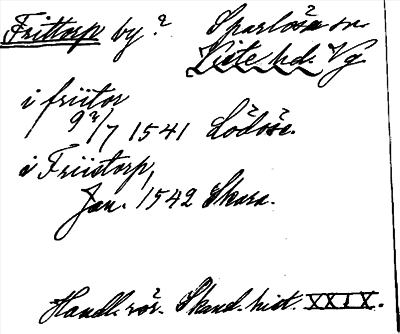 Frittorp by? Sparlösa sn.
Viste hd. Vg
i friitor
9/7 1541 Lödöse.
i Friistorp,
Jan. 1542 Skara.
Handl. rör. Skand. hist. XXIX.